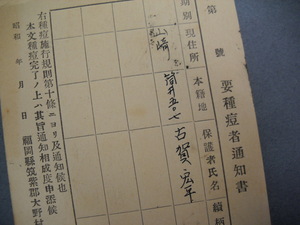 要種痘者通知書
第 號
期別
現住所
本籍地
保護者氏名
續柄
山崎
筒井五〇七
古賀宏平
右種痘施行規則第十條ニヨリ及通知候也
本文種痘完了ノ上ハ其旨通知相成度申添候
昭和 年 月 日
福岡縣筑紫郡大野村